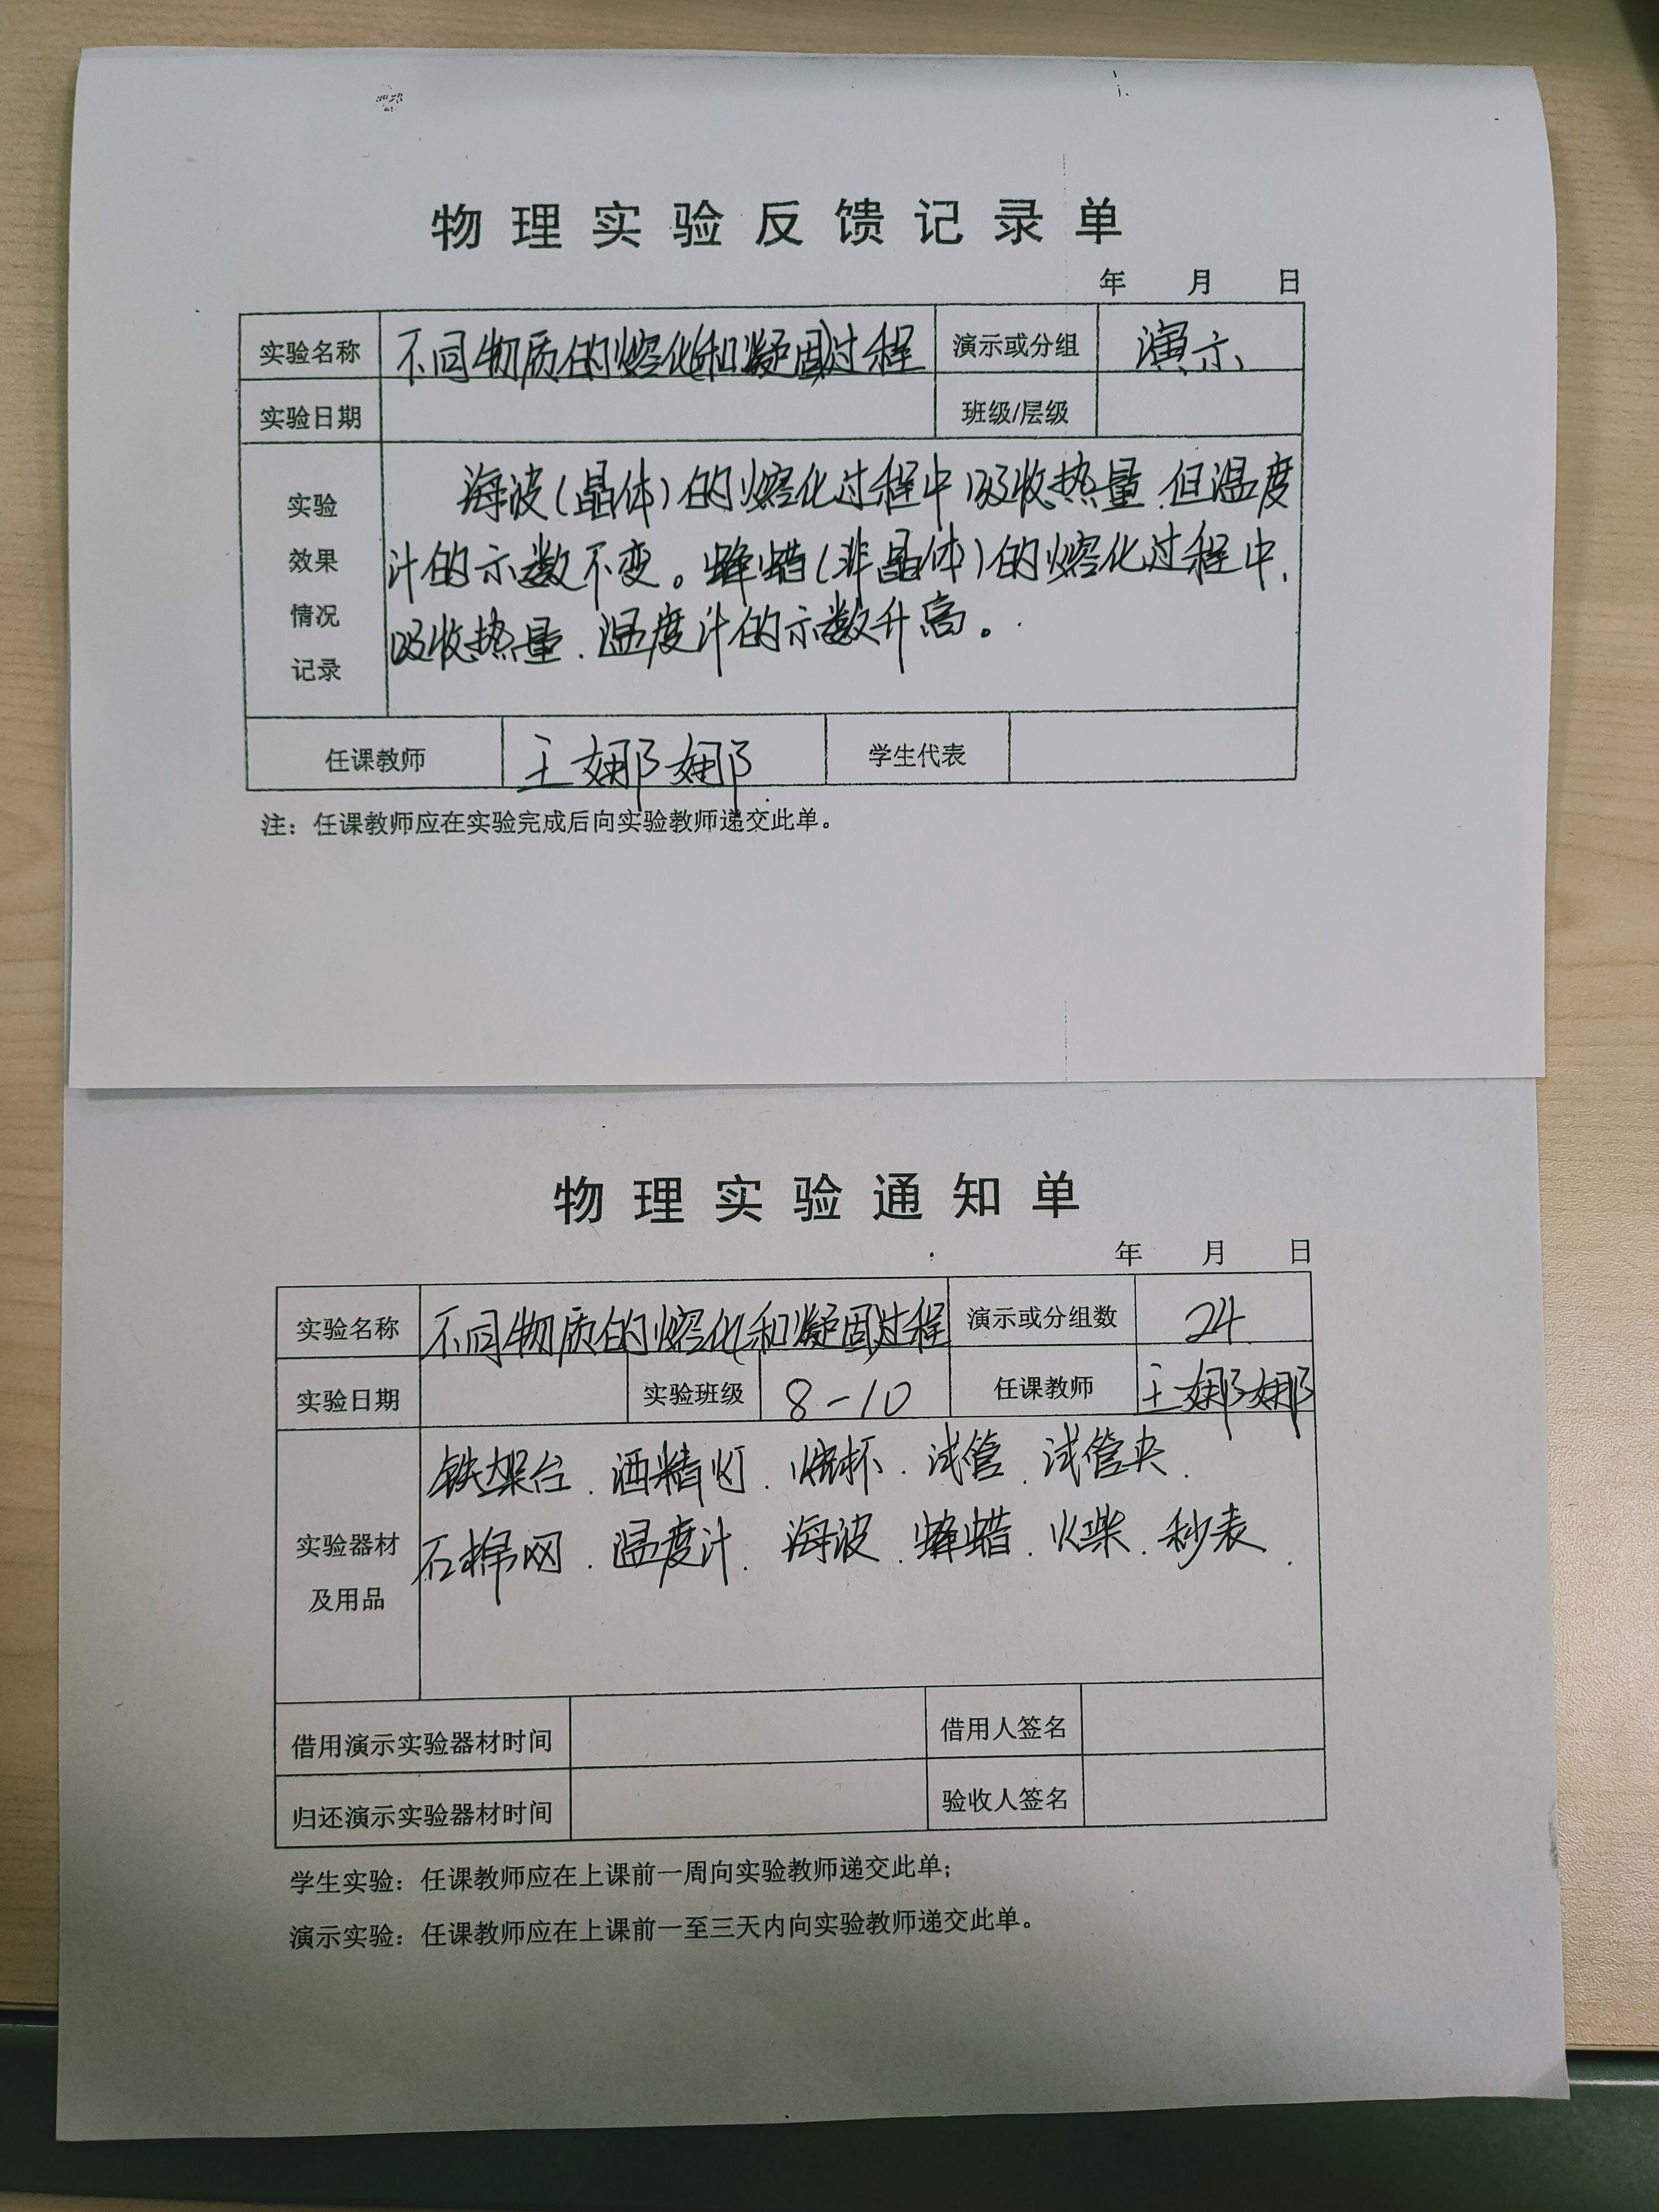 物理实验反馈记录单
年 月 日
实验名称 不同物质的熔化(和凝固)过程 演示或分组 演示
实验日期 班级/层级
实验效果情况记录
海波(晶体)的熔化过程中吸收热量.但温度
计的示数不变。蜂蜡(非晶体)的熔化过程中,
吸收热量.温度计的示数升高。
任课教师 王娜娜 学生代表
注：任课教师应在实验完成后向实验教师递交此单。
物理实验通知单
年 月 日
实验名称 不同物质的熔化(和凝固)过程 演示或分组数 24
实验日期 实验班级 8-10 任课教师 王娜娜
实验器材及用品
铁架台.酒精灯.烧杯.试管.试管夹.
石棉网.温度计.海波.蜂蜡.火柴.秒表.
借用演示实验器材时间 借用人签名
归还演示实验器材时间 验收人签名
学生实验：任课教师应在上课前一周向实验教师递交此单；
演示实验：任课教师应在上课前一至三天内向实验教师递交此单。